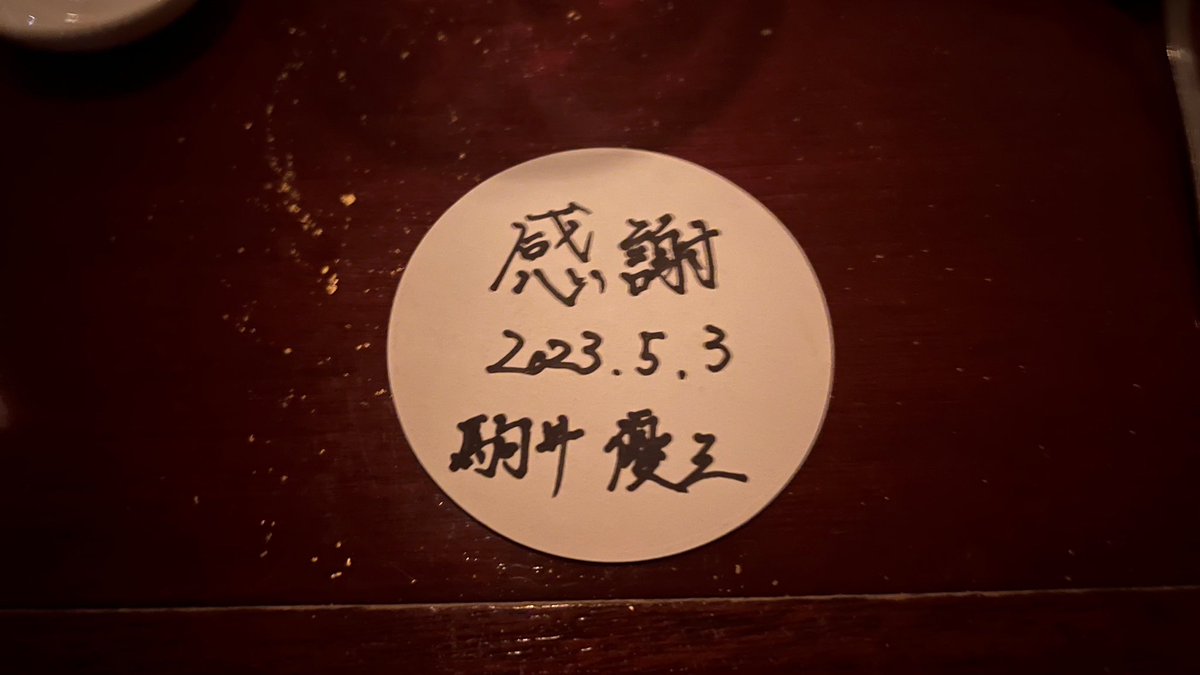 感謝
2023.5.3
駒井 優三